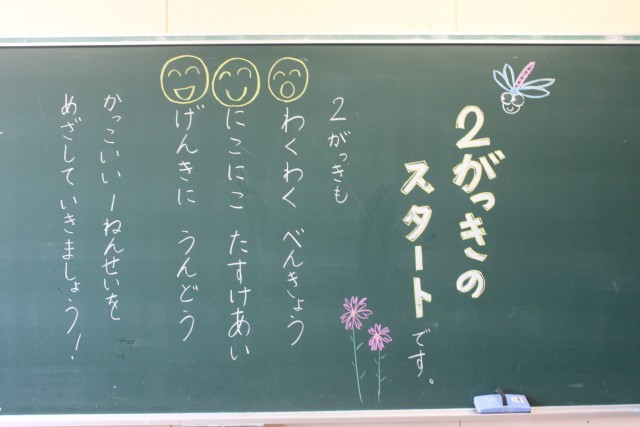 2がっきの
スタートです。
2がっきも
わくわく べんきょう
にこにこ たすけあい
げんきに うんどう
かっこいい1ねんせいを
めざしていきましょう!